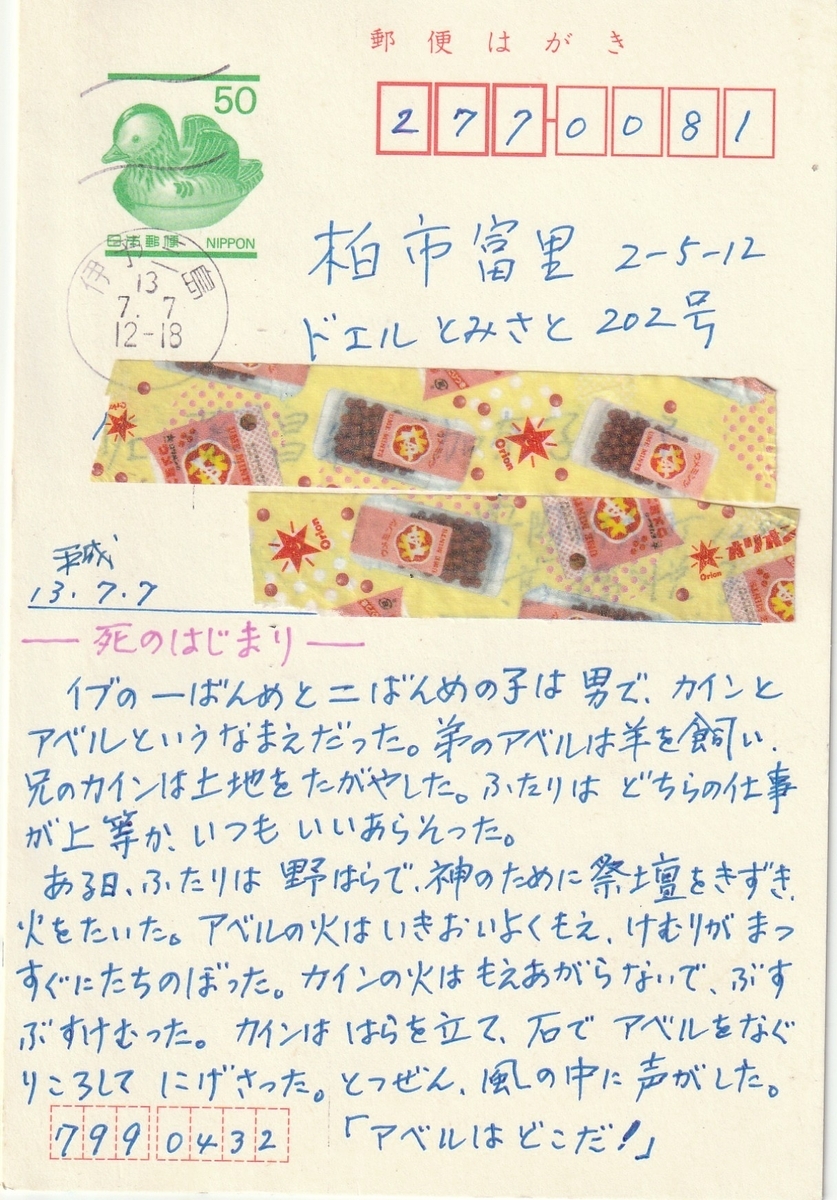 郵便はがき
50
日本郵便 NIPPON
2770081
13
7.7
12-18
柏市富里 2-5-12
ドエルとみさと 202号
Orion
ウメミンツ
UME MINTS
Orion
ウメミンツ
UME MINTS
Orion
ウメミンツ
UME MINTS
UME MINTS
Orion
平成
13.7.7
―死のはじまり―
イブの一ばんめと二ばんめの子は男で、カインと
アベルというなまえだった。弟のアベルは羊を飼い、
兄のカインは土地をたがやした。ふたりはどちらの仕事
が上等か、いつもいいあらそった。
ある日、ふたりは野はらで、神のために祭壇をきずき、
火をたいた。アベルの火はいきおいよくもえ、けむりがまっ
すぐにたちのぼった。カインの火はもえあがらないで、ぶす
ぶすけむった。カインははらを立て、石でアベルをなぐ
りころしてにげさった。とつぜん、風の中に声がした。
「アベルはどこだ!」
7990432